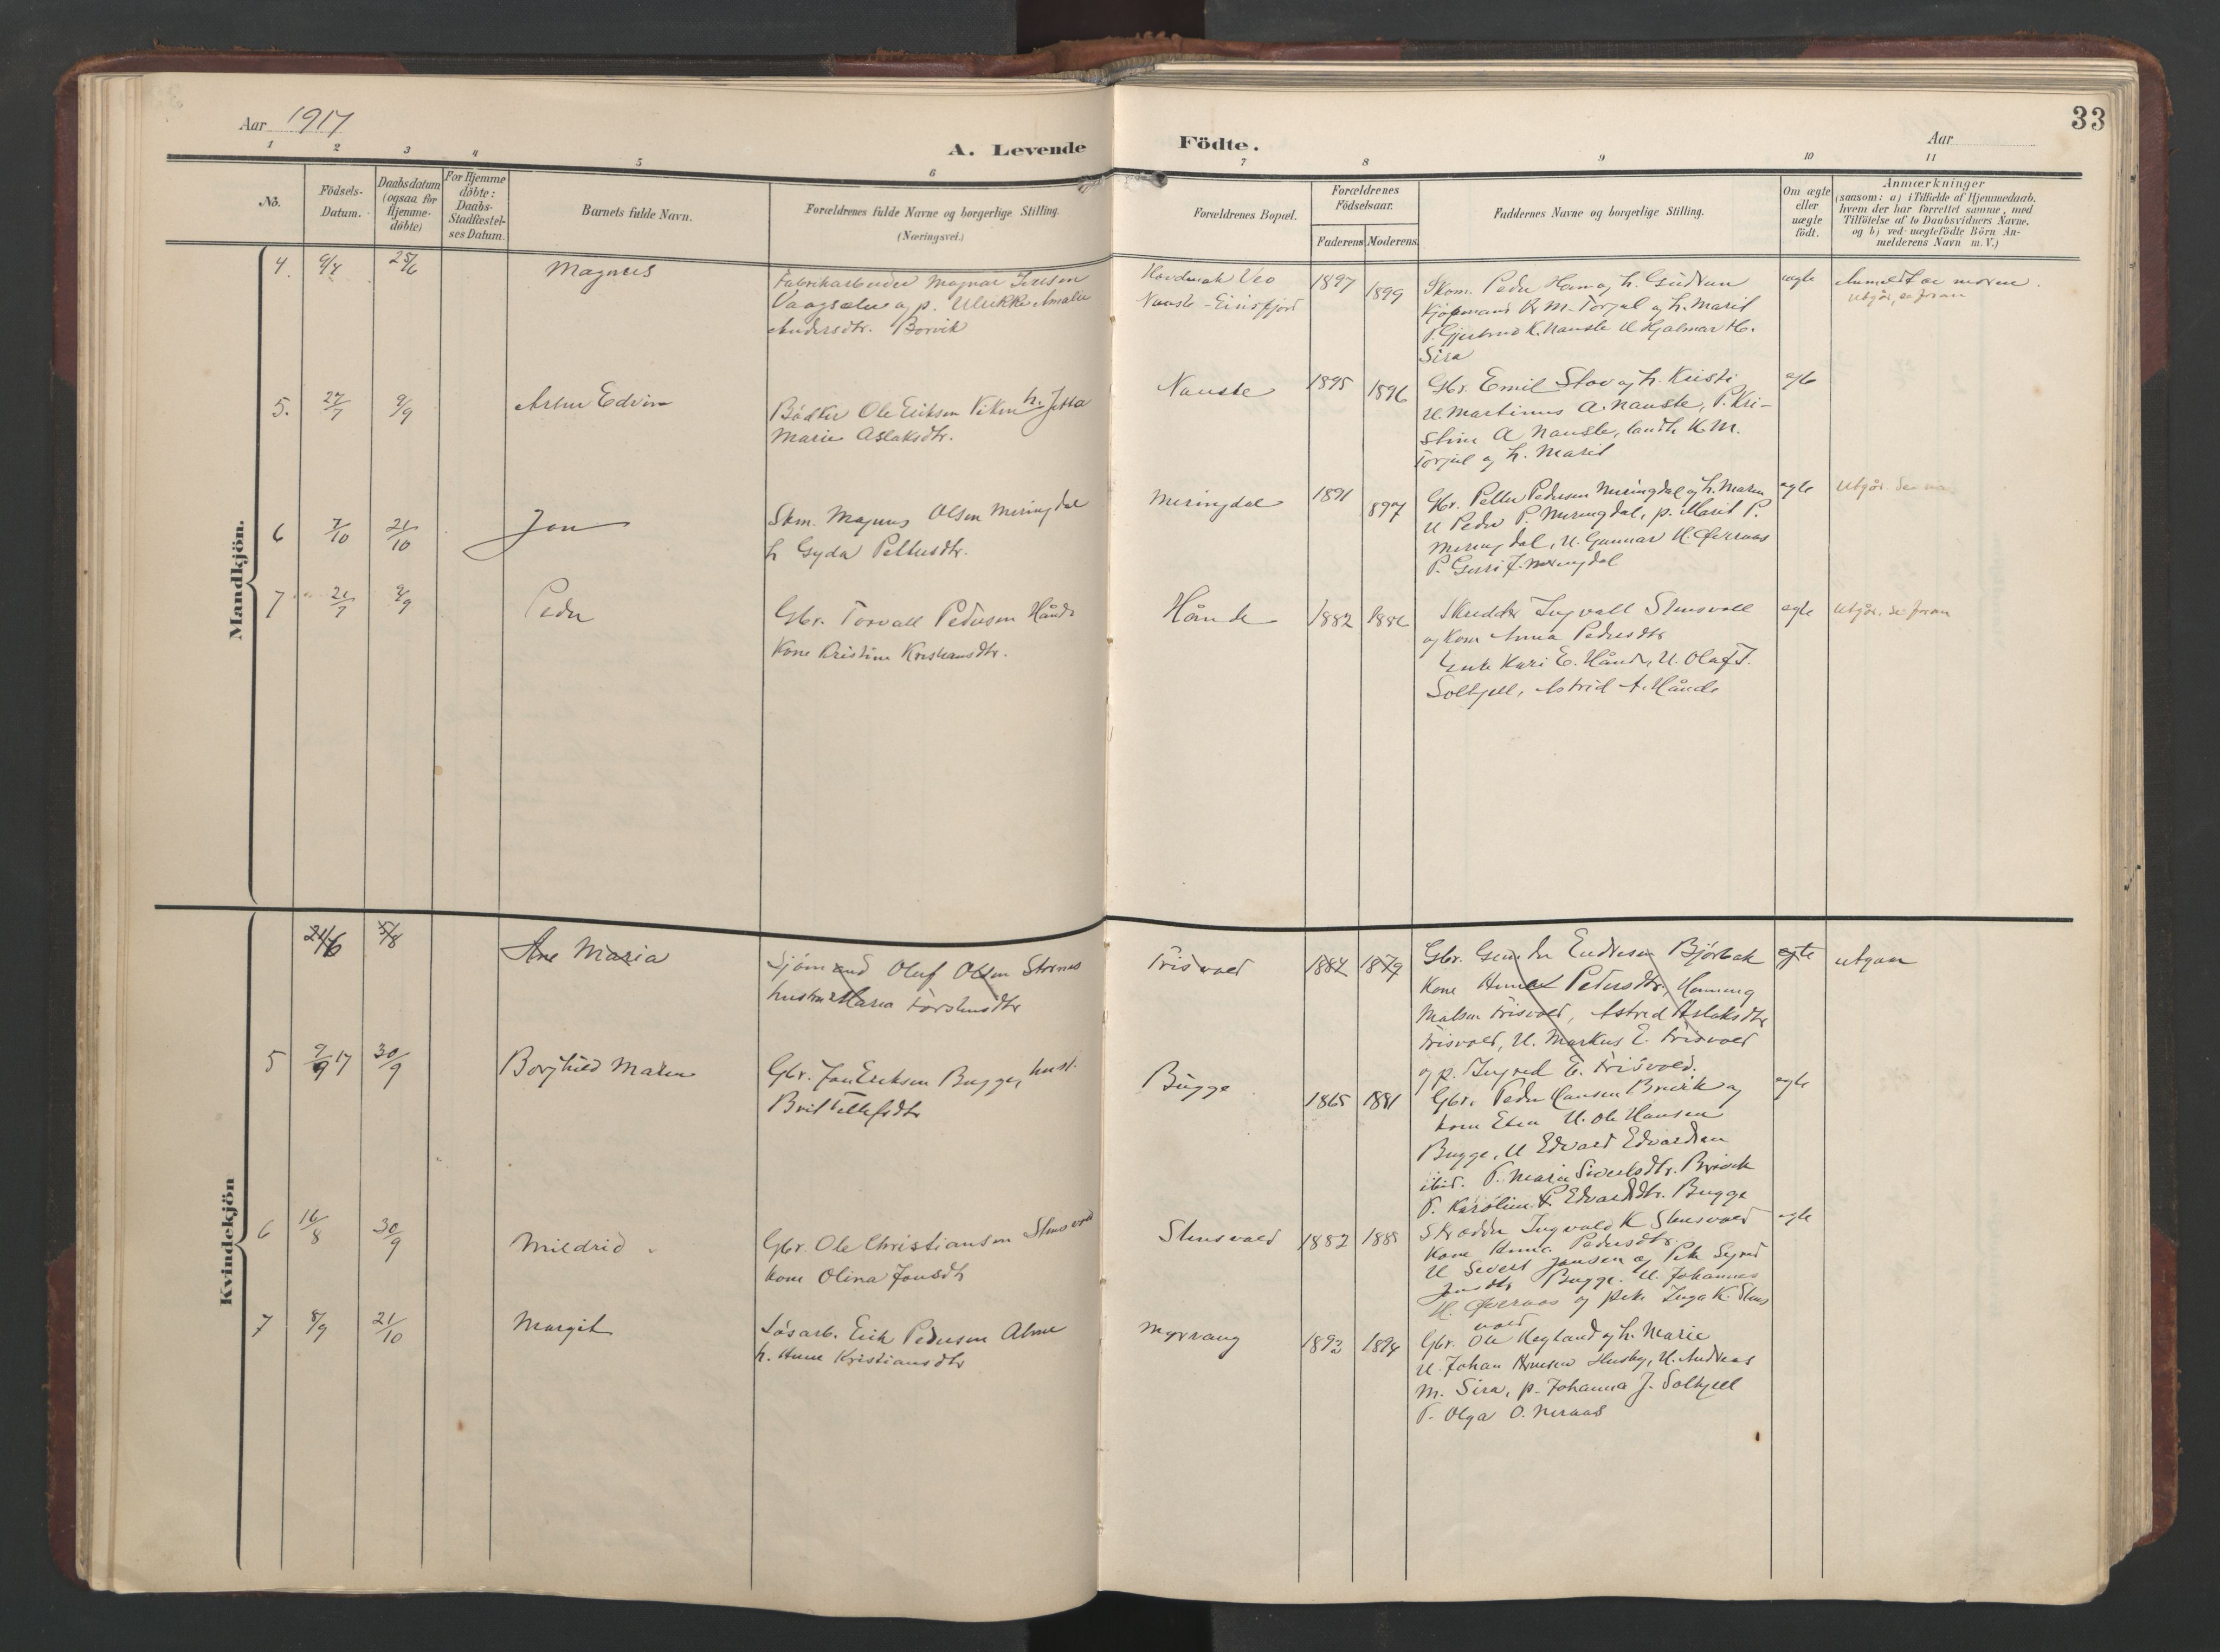 Aar 1917
A. Levende Födte.
Aar
33
1 2 3 4 5 6 7 8 9 10 11
No.
Födsels-Datum.
Daabsdatum (ogsaa for Hjemme-döbte)
For Hjemme döbte: Daabs-Stadfæstel-ses Datum.
Barnets fulde Navn.
Forældrenes fulde Navne og borgerlige Stilling.
(Næringsvei.)
Forældrenes Bopæl.
Forældrenes Födselsaar.
Faderens Moderens
Faddernes Navne og borgerlige Stilling.
Om ægte eller uægte födt.
Anmærkninger
(saasom: a) i Tilfælde af Hjemmedaab.
hvem der har forrettet samme, med
Tilföielse af to Daabsvidners Navne.
og b) ved uægtefödte Börn An-
melderens Navn m. V.)
Mandkjön.
4. 25/6 Magnus
Fabrikarbeider Magnar Iversen
Vaagsæter og p. Ulrikke Amalie
Andersdtr. Borvik
Nauste - Eirisfjord
1897 1899
Skom. Peder Ham og h. Gudrun
Kjøpmand K. M. Torjul og h. Marit
P. Gjertrud K. Nauste U Hjalmar H.
Sira
ægte
Anmeldt av moren.
Utgår, se foran
5. 27/7 9/9 Artur Edvin
Bödker Ole Eriksen Viken h. Jetta
Marie Aslaksdtr.
Nauste
1895 1896
Gbr. Emil Stov og h. Kristi
U. Martinus A. Nauste, P. Kri-
stine A Nauste, landh. K. M.
Torjul og h. Marit
egte
6 7/10 21/10 Jon
Skm. Magnus Olsen Meringdal
h Gyda Pettersdtr.
Meringdal
1891 1897
Gbr. Petter Pedersen Meringdal og h. Maren
U Peder P. Meringdal, p. Marit P.
Meringdal, U. Gunnar H. Øveraas
P. Guri J. Meringdal
egte
Utgår. Se
7 21/7 9/9 Peder
Gbr. Torvall Pedersen Hånde
Kone Kristine Kristensdtr.
Hånde
1882 1886
Skredder Ingvall Stensvoll
og Kone Anna Pedersdtr
Enke Kari E. Hånde, U. Olaf T.
Soltjell, Astrid A. Hånde
egte
Utgår. se foran
Kvindekjön
24/6 5/8 Ane Maria
Sjömand Oluf Olsen Strønes
hustru Maria Torstensdtr
Frisvold
1884 1879
Gbr. Gunder Endresen Bjørbak
Kone Anne Petersdtr, Henning
Matsen Frisvold, Astrid Aslaksdtr
Frisvold, U. Markus E. Frisvold
og p. Ingrid E. Frisvold.
egte
utgaar
5 9/9 17 30/9 Borghild Maren
Gbr. Jon Eriksen Bugge, hust.
Brit Tellefsdtr
Bugge
1865 1881
Gbr. Peder Hansen Brevik og
kone Elen U. Ole Hansen
Bugge, U Edvard Edvardsen
ibid. P. Maria Sivertsdtr. Brevik
P. Karoline P. Edvardsdtr. Bugge
egte
6 16/8 30/9 Mildrid
Gbr. Ole Christiansen Stensvold
Kone Olina Jonsdtr
Stensvold
1882 1885
Skrædder Ingvald K Stensvold
Kone Anna Pedersdtr.
U Sivert Jonsen og Pike Sigrid
Jonsdtr Bugge. U. Johannes
H. Øveraas og pike Inga K. Stens
vold
egte
7 8/9 21/10 Margit
Løsarb. Erik Pedersen Alme
h. Anne Kristiansdtr
Myrvang
1892 1894
Gbr. Ole Hegland og h. Marie
U. Johan Arnesen Husby, U. Andreas
M. Sira, p. Johanna J. Soltjell
P. Olga O. Neraas